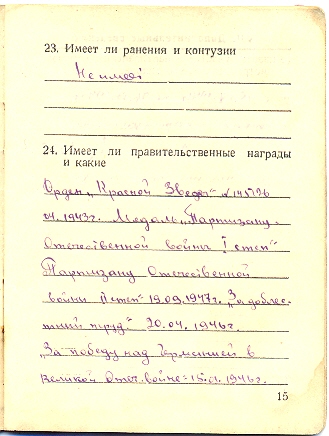 23. Имеет ли ранения и контузии
Не имеет
24. Имеет ли правительственные награды
и какие
Орден „Красной Звезды"
04.1943г. Медаль „Партизану
Отечественной войны I степ"
Партизану Отечественной
войны II степ" 19.09.1947г. „За доблес-
тный труд" 20.04.1946г.
„За победу над Германией в
Великой Отеч. войне" 15.01.1946г.
15